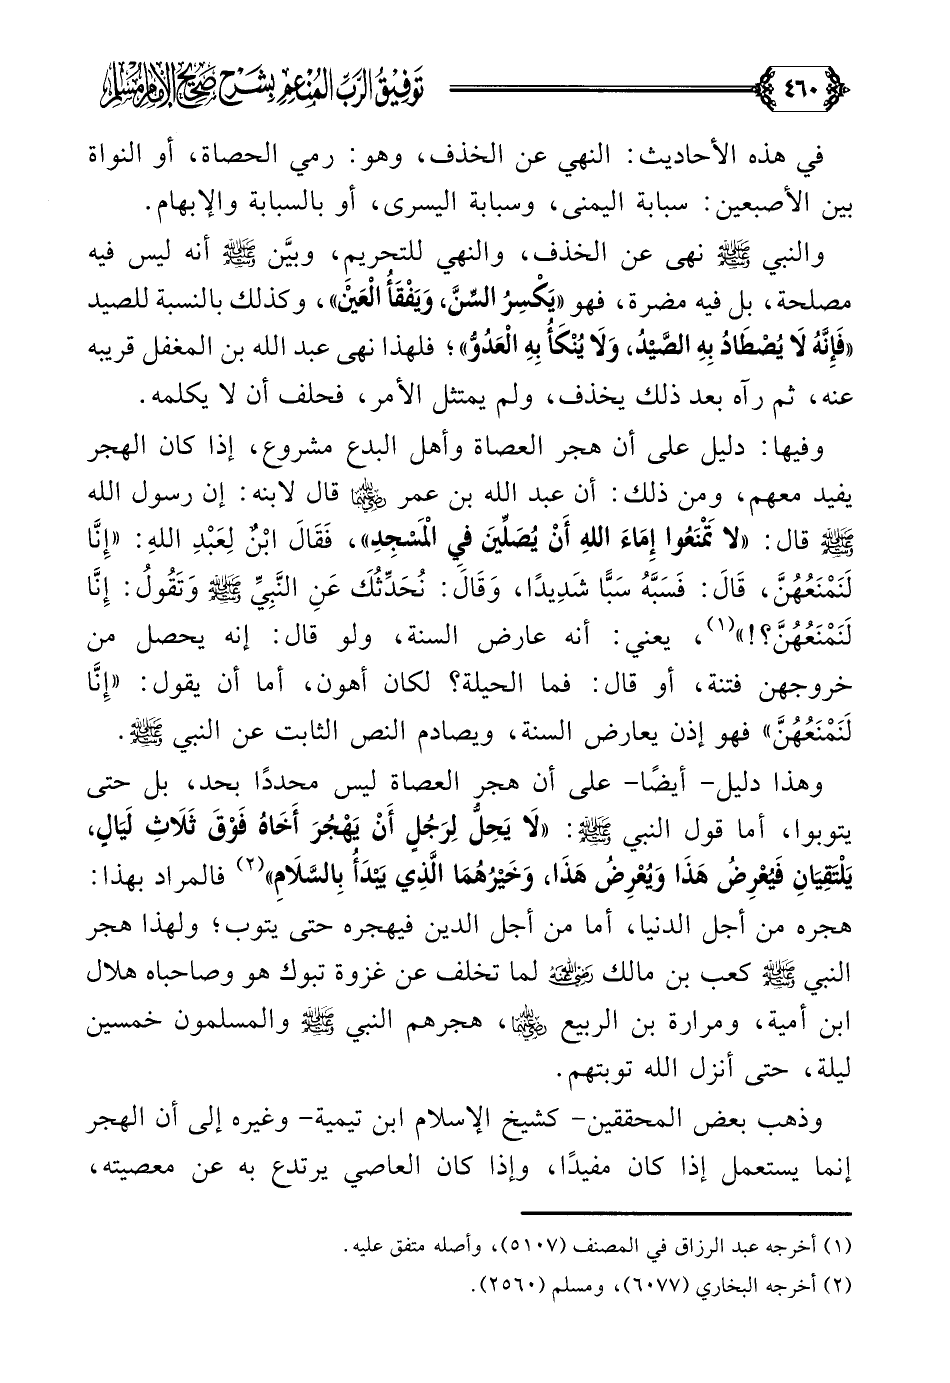 ٤٦٠
تَوفِيقُ الرَّبِّ المُنعِمِ بِشَرحِ صَحِيحِ الإِمَامِ مُسلِم
في هذه الأحاديث: النهي عن الخذف، وهو: رمي الحصاة، أو النواة
بين الأصبعين: سبابة اليمنى، وسبابة اليسرى، أو بالسبابة والإبهام.
والنبي ﷺ نهى عن الخذف، والنهي للتحريم، وبيَّن ﷺ أنه ليس فيه
مصلحة، بل فيه مضرة، فهو «يَكْسِرُ السِّنَّ، وَيَفْقَأُ الْعَيْنَ»، وكذلك بالنسبة للصيد
«فَإِنَّهُ لَا يُصْطَادُ بِهِ الصَّيْدُ، وَلَا يُنْكَأُ بِهِ الْعَدُوُّ»؛ فلهذا نهى عبد الله بن المغفل قريبه
عنه، ثم رآه بعد ذلك يخذف، ولم يمتثل الأمر، فحلف أن لا يكلمه.
وفيها: دليل على أن هجر العصاة وأهل البدع مشروع، إذا كان الهجر
يفيد معهم، ومن ذلك: أن عبد الله بن عمر رضي الله عنهما قال لابنه: إن رسول الله
ﷺ قال: «لا تَمْنَعُوا إِمَاءَ اللهِ أَنْ يُصَلِّينَ فِي الْمَسْجِدِ»، فَقَالَ ابْنٌ لِعَبْدِ اللهِ: «إِنَّا
لَنَمْنَعُهُنَّ، قَالَ: فَسَبَّهُ سَبًّا شَدِيدًا، وَقَالَ: نُحَدِّثُكَ عَنِ النَّبِيِّ ﷺ وَتَقُولُ: إِنَّا
لَنَمْنَعُهُنَّ؟!»(١)، يعني: أنه عارض السنة، ولو قال: إنه يحصل من
خروجهن فتنة، أو قال: فما الحيلة؟ لكان أهون، أما أن يقول: «إِنَّا
لَنَمْنَعُهُنَّ» فهو إذن يعارض السنة، ويصادم النص الثابت عن النبي ﷺ.
وهذا دليل- أيضًا- على أن هجر العصاة ليس محددًا بحد، بل حتى
يتوبوا، أما قول النبي ﷺ: «لَا يَحِلُّ لِرَجُلٍ أَنْ يَهْجُرَ أَخَاهُ فَوْقَ ثَلَاثِ لَيَالٍ،
يَلْتَقِيَانِ فَيُعْرِضُ هَذَا وَيُعْرِضُ هَذَا، وَخَيْرُهُمَا الَّذِي يَبْدَأُ بِالسَّلَامِ»(٢) فالمراد بهذا:
هجره من أجل الدنيا، أما من أجل الدين فيهجره حتى يتوب؛ ولهذا هجر
النبي ﷺ كعب بن مالك رضي الله عنه لما تخلف عن غزوة تبوك هو وصاحباه هلال
ابن أمية، ومرارة بن الربيع رضي الله عنهما، هجرهم النبي ﷺ والمسلمون خمسين
ليلة، حتى أنزل الله توبتهم.
وذهب بعض المحققين- كشيخ الإسلام ابن تيمية- وغيره إلى أن الهجر
إنما يستعمل إذا كان مفيدًا، وإذا كان العاصي يرتدع به عن معصيته،
(١) أخرجه عبد الرزاق في المصنف (٥١٠٧)، وأصله متفق عليه.
(٢) أخرجه البخاري (٦٠٧٧)، ومسلم (٢٥٦٠).